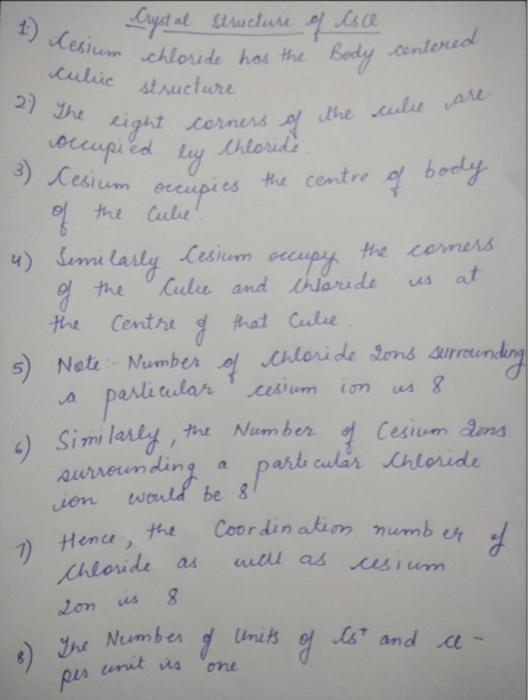 Crystal Structure of CsCl
1.) Cesium chloride has the Body centered
cubic structure
2) The eight corners of the cube are
occupied by Chloride.
3) Cesium occupies the centre of body
of the Cube.
4) Similarly Cesium occupy the corners
of the Cube and Chloride is at
the Centre of that Cube.
5) Note:- Number of Chloride Ions surrounding
a particular cesium ion is 8
6) Similarly, the Number of Cesium Ions
surrounding a particular Chloride
ion would be 8
7) Hence, the Coordination number of
Chloride as well as cesium
Ion is 8
8) The Number of Units of Cs+ and Cl-
per unit is one